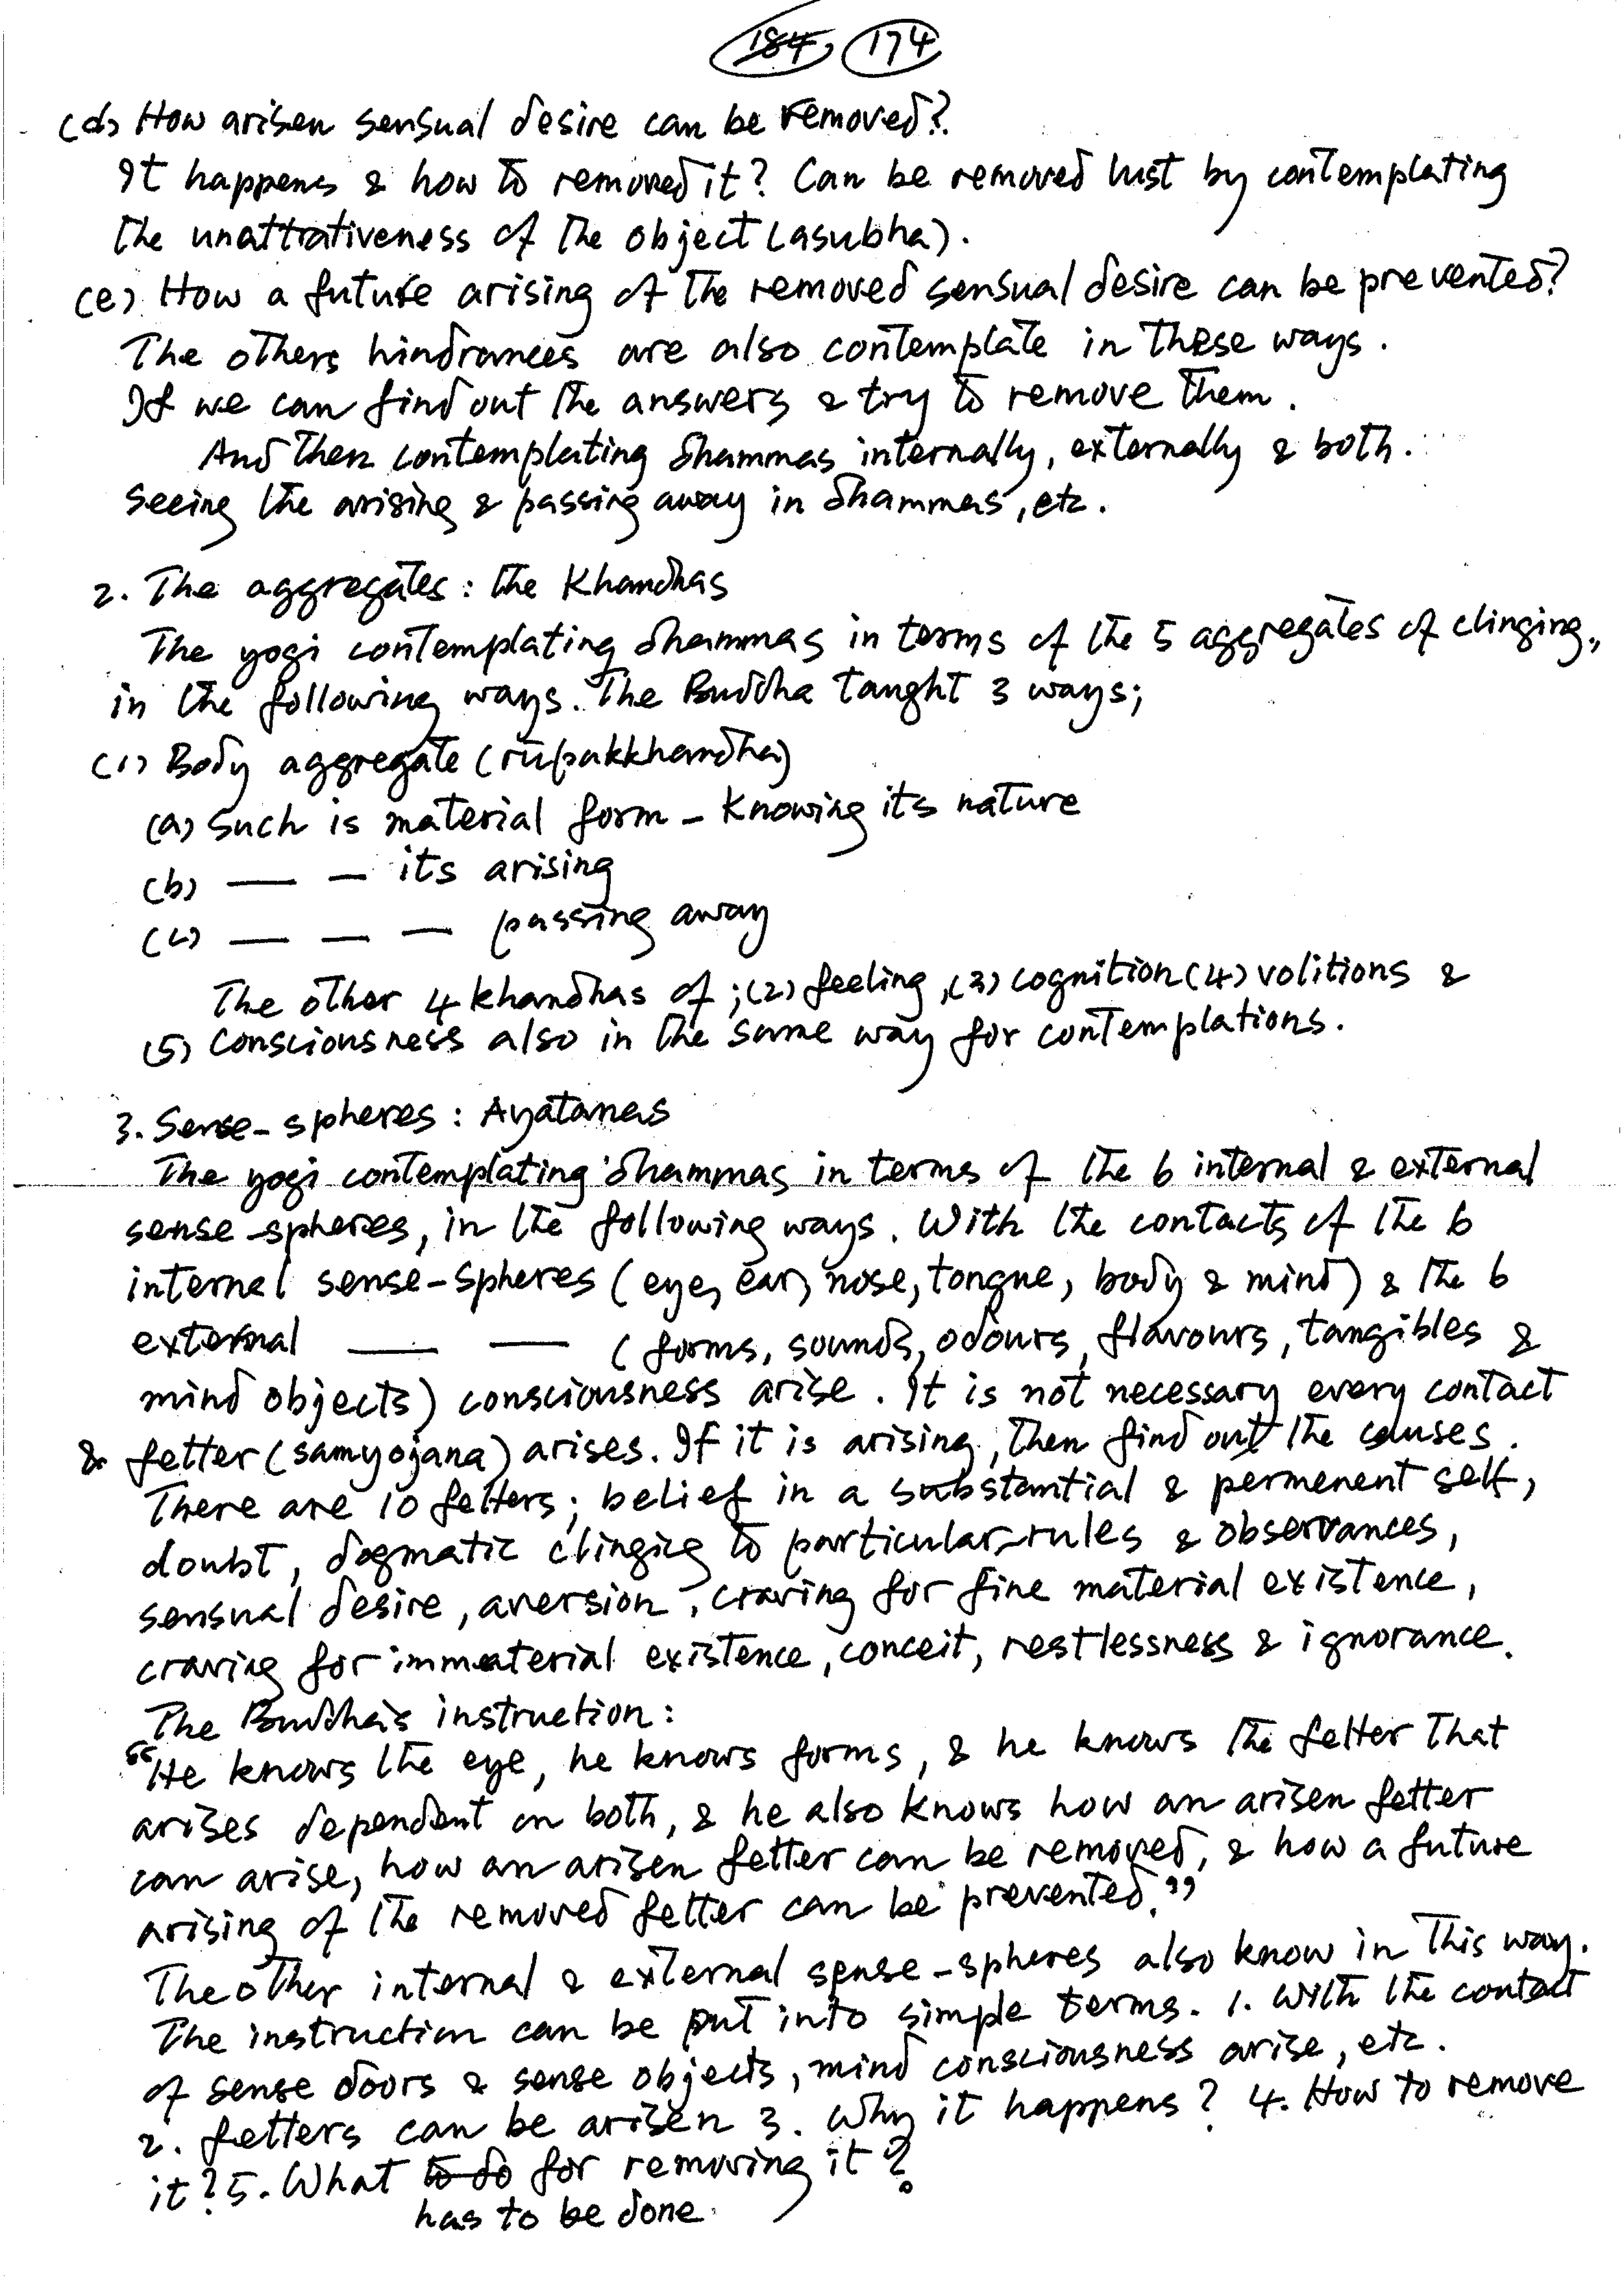 184, 174
(d) How arisen sensual desire can be removed?
It happens & how to removed it? Can be removed lust by contemplating
the unattrativeness of the object (asubha).
(e) How a future arising of the removed sensual desire can be prevented?
The others hindrances are also contemplate in these ways.
If we can find out the answers & try to remove them.
And then contemplating dhammas internally, externally & both.
Seeing the arising & passing away in dhammas, etc.
2. The aggregates: the Khandhas
The yogi contemplating dhammas in terms of the 5 aggregates of clinging,
in the following ways. The Buddha taught 3 ways;
(1) Body aggregate (rūpakkhandha)
(a) Such is material form – Knowing its nature
(b) — — its arising
(c) — — — passing away
The other 4 khandhas of ; (2) feeling, (3) cognition (4) volitions &
(5) consciousness also in the same way for contemplations.
3. Sense-spheres: Ayatanas
The yogi contemplating dhammas in terms of the 6 internal & external
sense-spheres, in the following ways. With the contacts of the 6
internal sense-spheres (eye, ear, nose, tongue, body & mind) & the 6
external — — (forms, sounds, odours, flavours, tangibles &
mind objects) consciousness arise. It is not necessary every contact
& fetter (samyojana) arises. If it is arising, then find out the causes.
There are 10 fetters; belief in a substantial & permenent self,
doubt, dogmatic clinging to particular rules & observances,
sensual desire, aversion, craving for fine material existence,
craving for immaterial existence, conceit, restlessness & ignorance.
The Buddha's instruction:
"He knows the eye, he knows forms, & he knows the fetter that
arises dependent on both, & he also knows how an arisen fetter
can arise, how an arisen fetter can be removed, & how a future
arising of the removed fetter can be prevented."
The other internal & external sense-spheres also know in this way.
The instruction can be put into simple terms. 1. With the contact
of sense doors & sense objects, mind consciousness arise, etc.
2. fetters can be arisen 3. Why it happens? 4. How to remove
it? 5. What to do for removing it?
has to be done